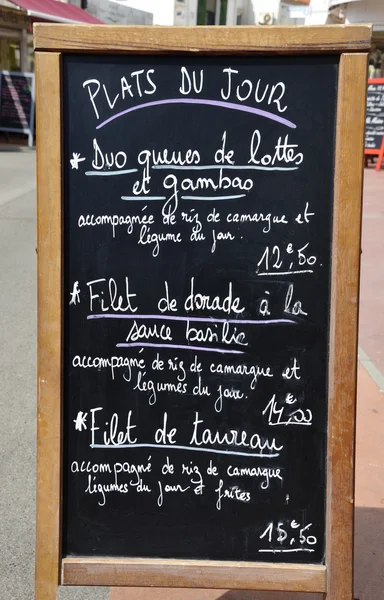 PLATS DU JOUR
* Duo queues de lottes
et gambas
accompagnée de riz de camargue et
légume du jour.
12€,50.
* Filet de dorade à la
sauce basilic
accompagné de riz de camargue et
légumes du jour.
14€,00
* Filet de taureau
accompagné de riz de camargue
légumes du jour et frites
15€,50